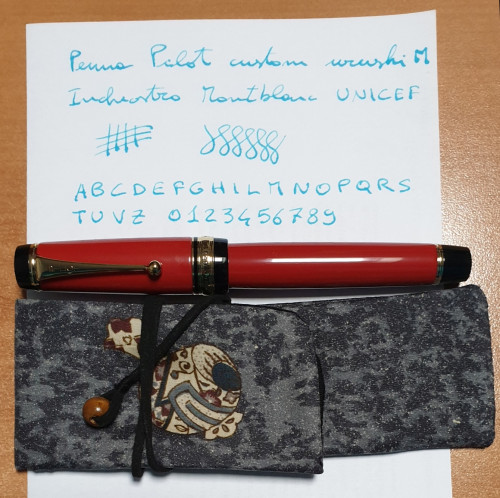 Penna Pilot custom urushi M
Inchiostro Montblanc UNICEF
ABCDEFGHILMNOPQRS
TUVZ 0123456789